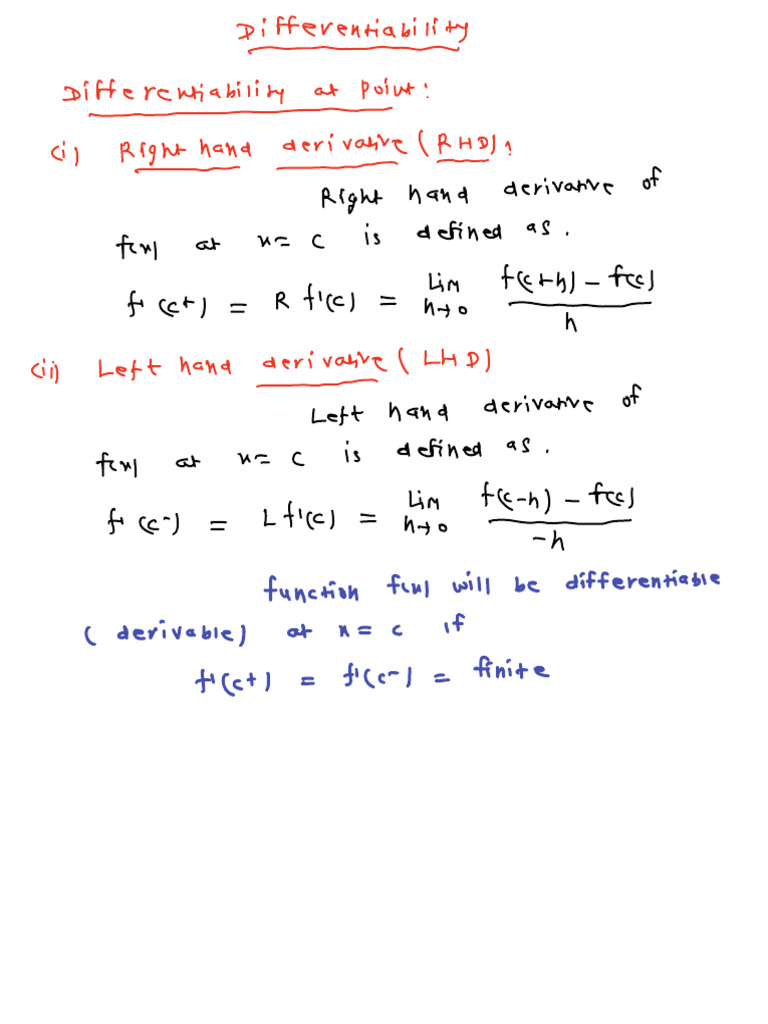 Differentiability
Differentiability at point:
(i) Right hand derivative (RHD):
Right hand derivative of
f(x) at x = c is defined as.
f'(c+) = R f'(c) = Lim h→0 f(c+h) - f(c) / h
(ii) Left hand derivative (LHD)
Left hand derivative of
f(x) at x = c is defined as.
f'(c-) = L f'(c) = Lim h→0 f(c-h) - f(c) / -h
function f(x) will be differentiable
(derivable) at x = c if
f'(c+) = f'(c-) = finite